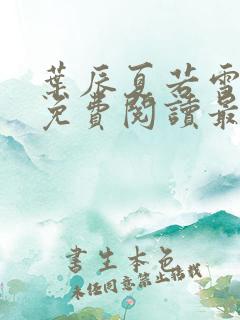 葉辰夏若雪
免費閱讀最
書生本色
未经同意禁止转载